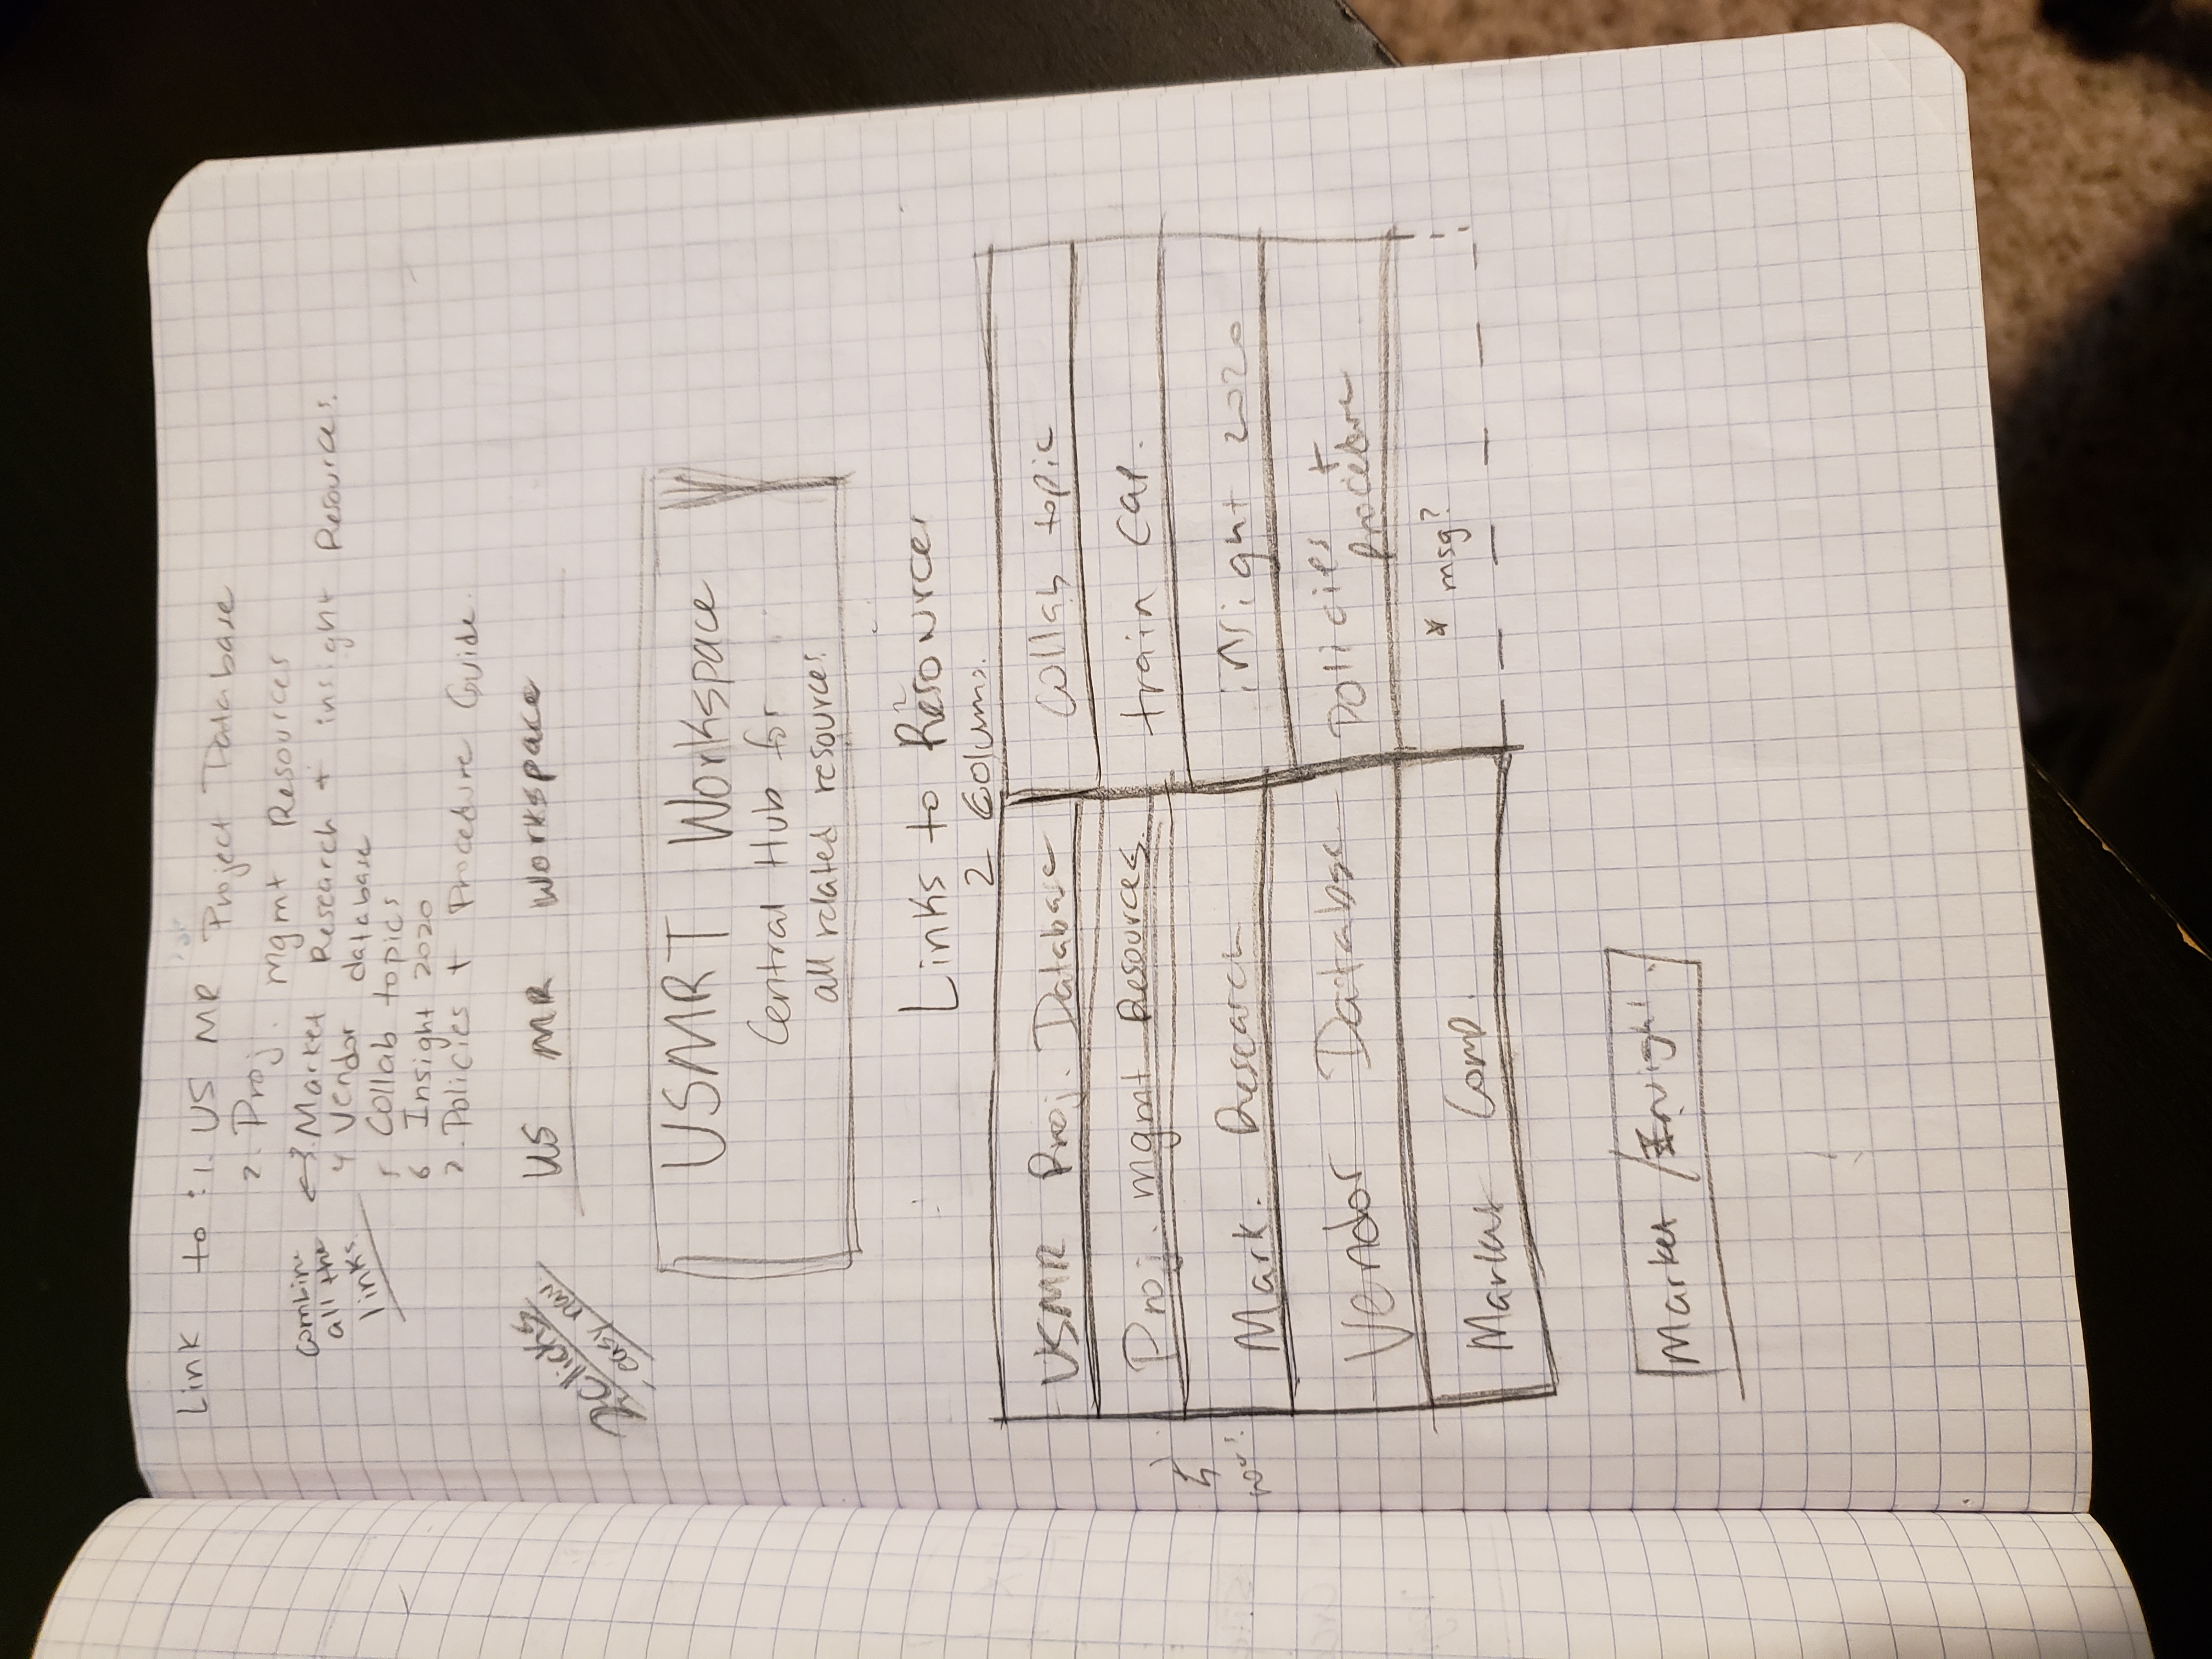 Link to : 1. US MR Project Database
2. Proj. mgmt Resources
3. Market Research + insight Resources.
4 Vendor database
5 Collab topics
6 Insight 2020
7. Policies + Procedure Guide.
combine
all the
links
2 clicks
- easy nav
US MR Workspace
USMRT Workspace
Central Hub for
all related resources
Links to Resources
2 Colums.
USMR Proj. Database
Collab topic
Proj. mgmt Resources.
train Cap.
5
Mark. Research
insight 2020
Vendor Databse
Policies +
Procedure
Market Comp.
* msg?
Market / Insight